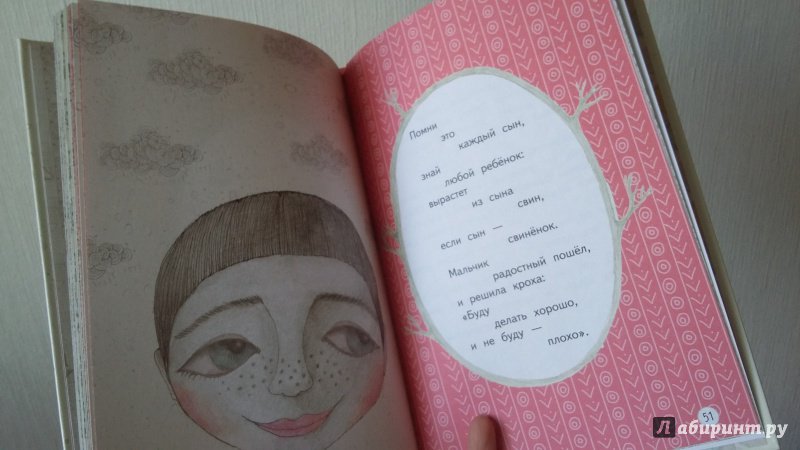 Помни
это
каждый сын,
знай
любой ребёнок:
вырастет
из сына
свин,
если сын —
свинёнок.
Мальчик
радостный пошёл,
и решила кроха:
«Буду
делать хорошо,
и не буду —
плохо».
51
Лабиринт.ру